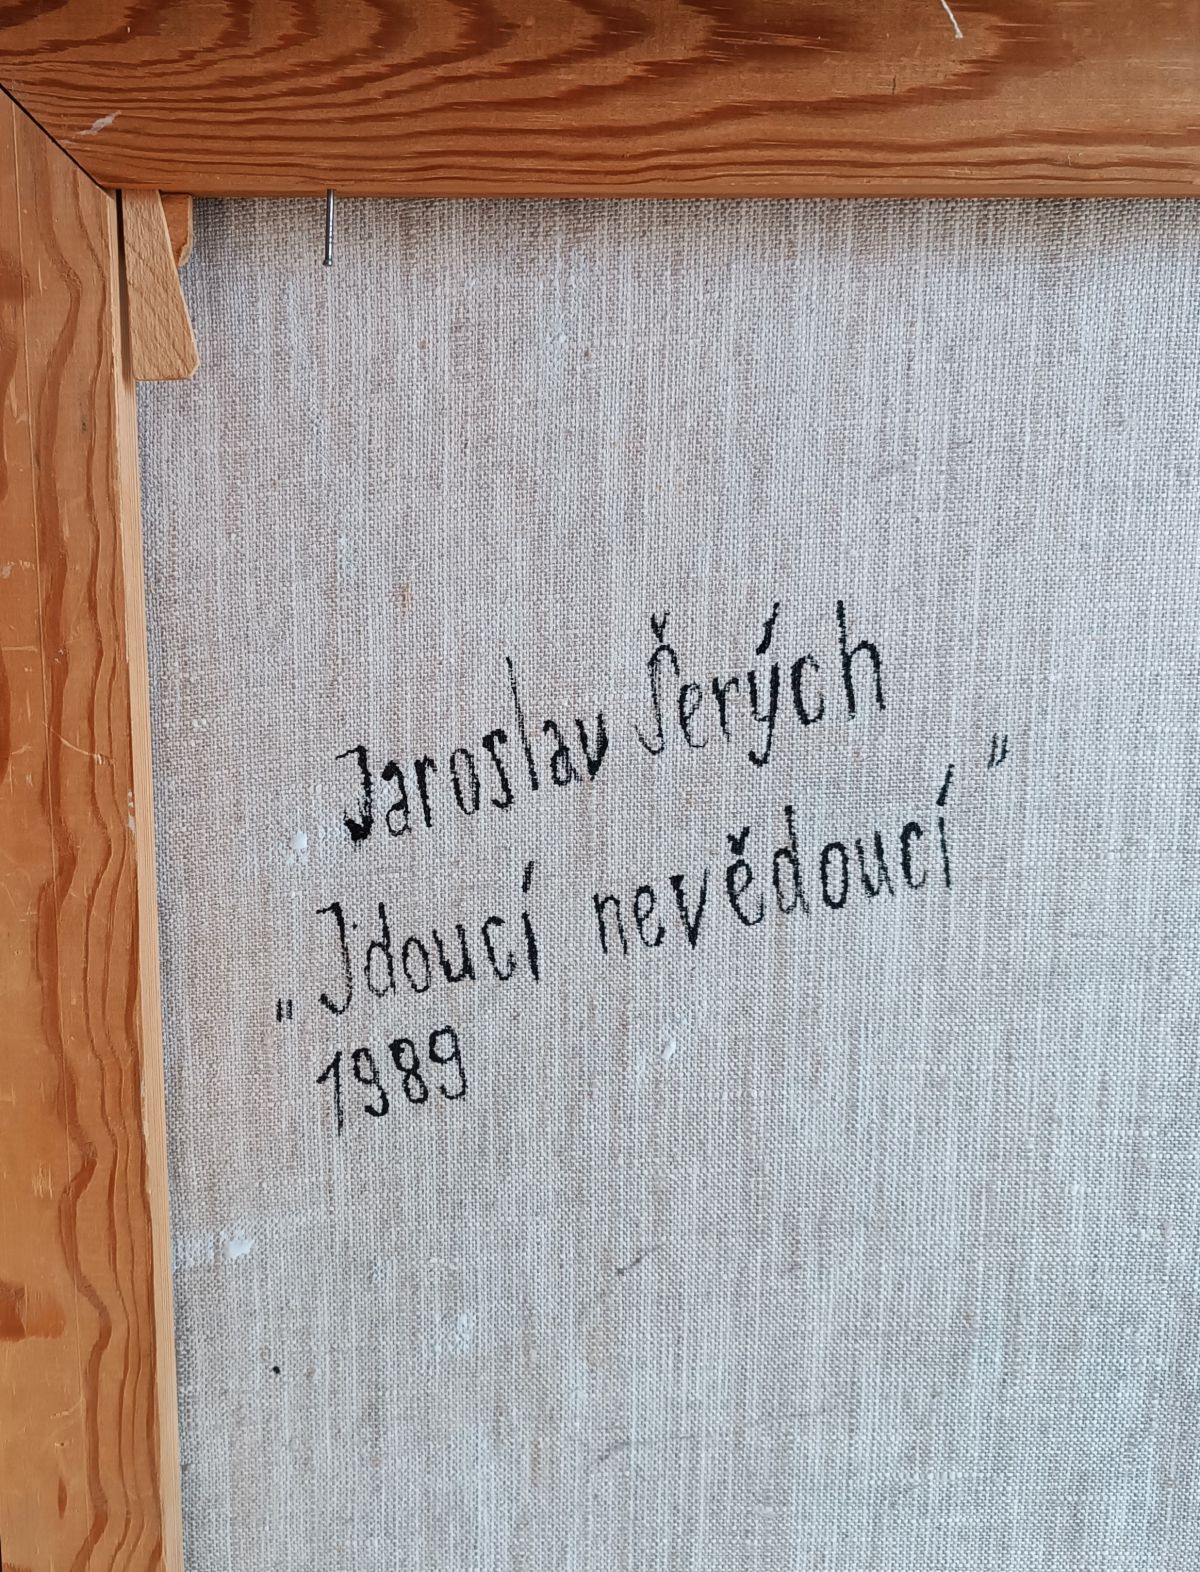 Jaroslav Šerých
„Jdoucí nevědoucí"
1989